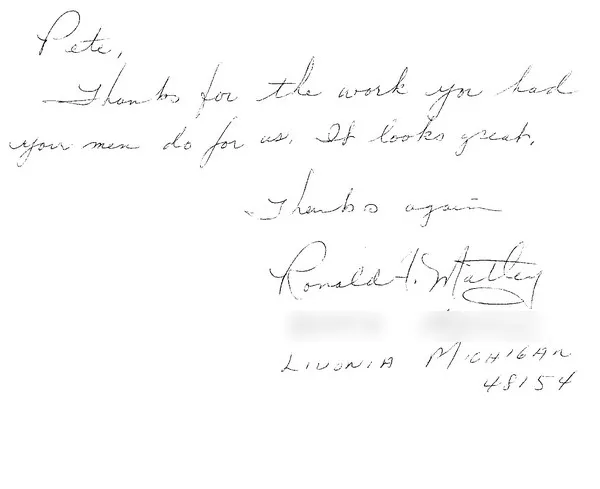 Pete,
Thanks for the work you had
your men do for us. It looks great.
Thanks again
Ronald F. Matley
LIVONIA MICHIGAN
48154